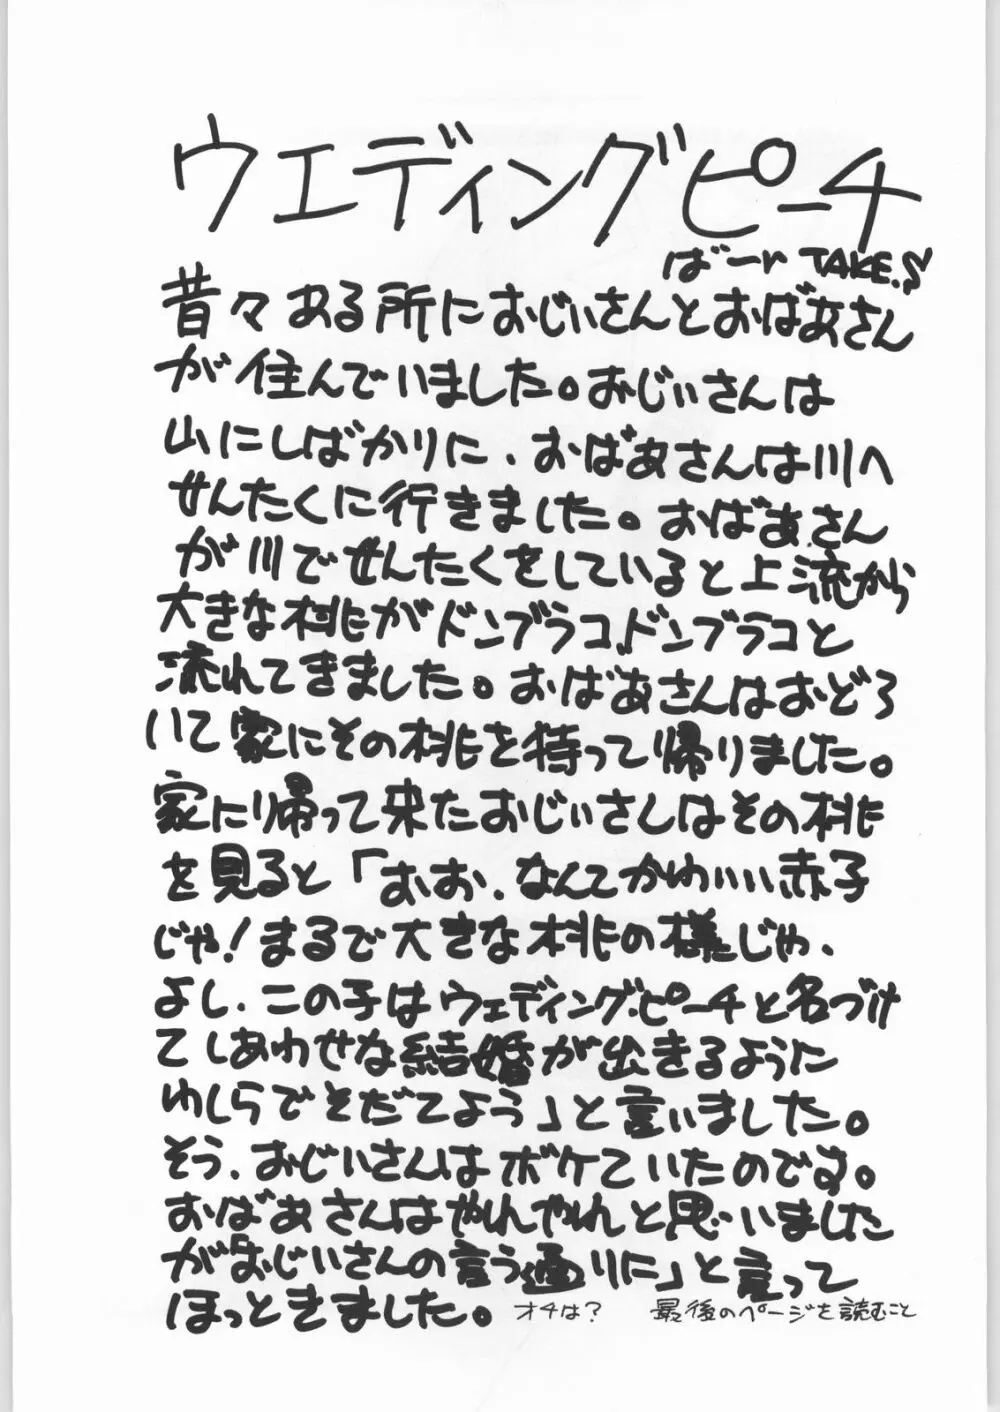 ウエディングピーチ
ばーr TAKE.S
昔々ある所におじぃさんとおばあさん
が住んでいました。おじぃさんは
山にしばかりに、おばあさんは川へ
せんたくに行きました。おばあさん
が川でせんたくをしていると上流から
大きな桃がドンブラコ、ドンブラコと
流れてきました。おばあさんはおどろ
いて家にその桃を持って帰りました。
家に帰って来たおじぃさんはその桃
を見ると「おお、なんてかわいい赤子
じゃ!まるで大きな桃の様じゃ、
よし、この子はウェディング・ピーチと名づけ
てしあわせな結婚が出きるように
わしらでそだてよう」と言いました。
そう、おじいさんはボケていたのです。
おばあさんはやれやれと思いました
が「おじいさんの言う通りに」と言って
ほっときました。
オチは? 最後のページを読むこと